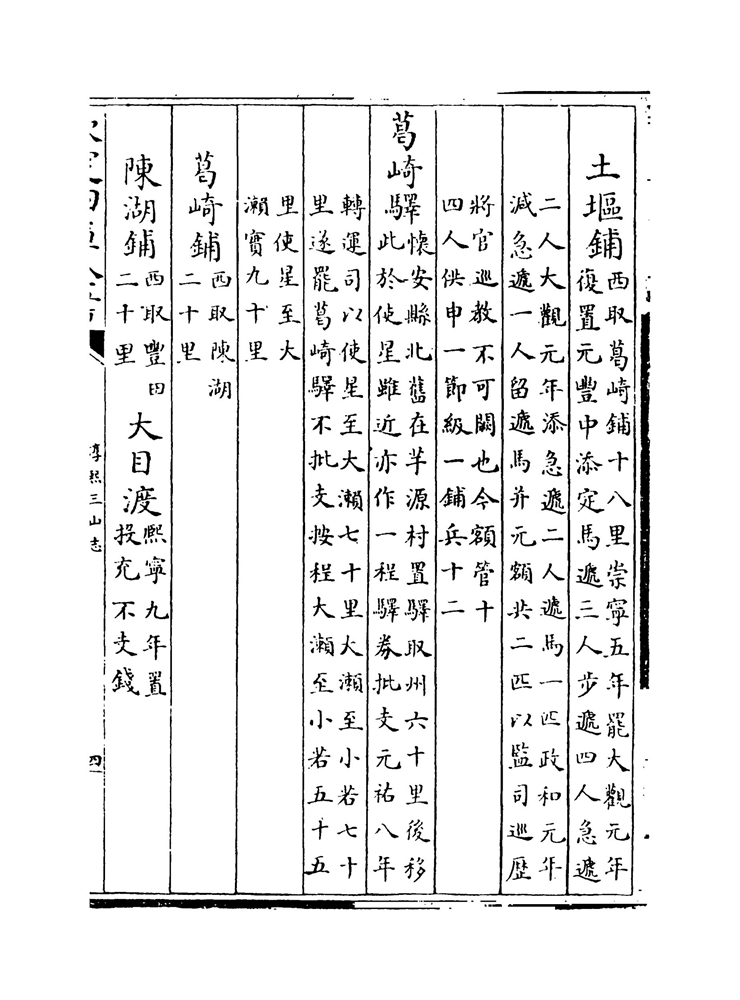 土堰鋪西取葛崎鋪十八里崇寧五年罷大觀元年
復置元豐中添定馬遞三人步遞四人急遞
二人大觀元年添急遞二人遞馬一匹政和元年
減急遞一人留遞馬并元額共二匹以監司巡歷
將官巡教不可闕也今額管十
四人供申一節級一鋪兵十二
葛崎驛懷安縣北舊在芋源村置驛取州六十里後移
此於使星雖近亦作一程驛券批支元祐八年
轉運司以使星至大瀨七十里大瀨至小若七十
里遂罷葛崎驛不批支按程大瀨至小若五十五
里使星至大
瀨實九十里
葛崎鋪西取陳湖
二十里
陳湖鋪西取豐田
二十里
大目渡熙寧九年置
投充不支錢
淳熙三山志
四